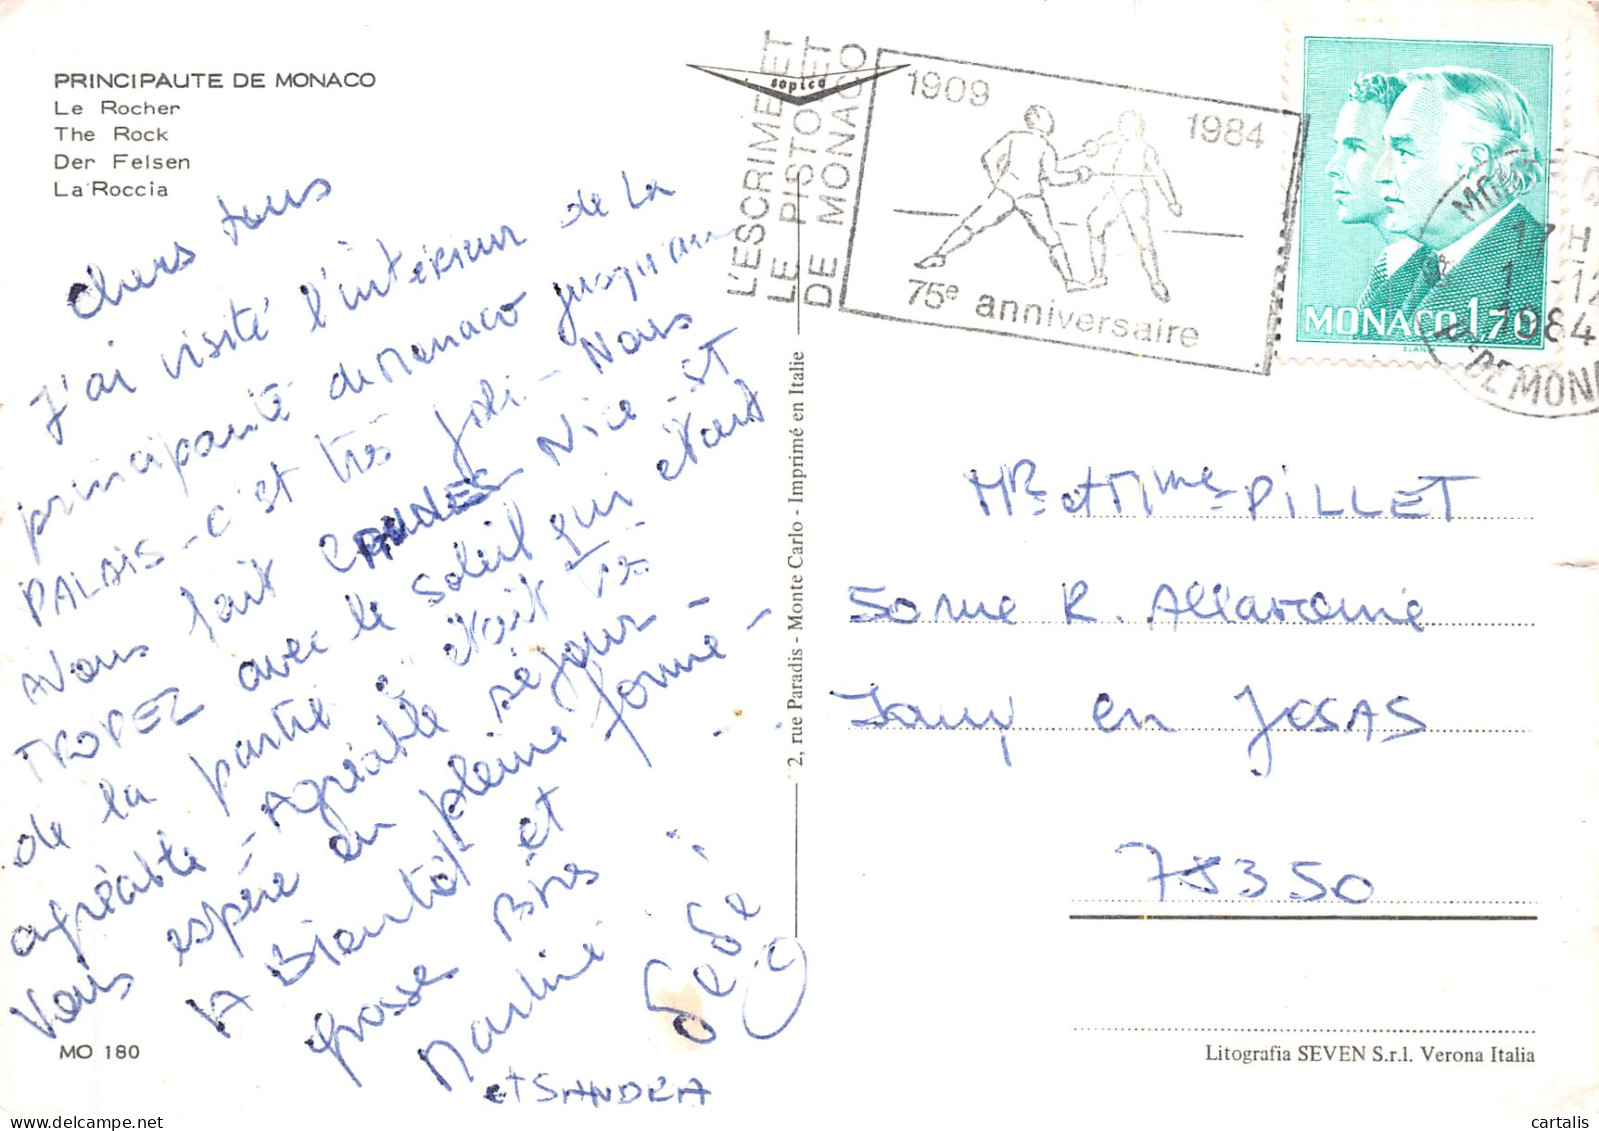 PRINCIPAUTE DE MONACO
Le Rocher
The Rock
Der Felsen
La Roccia
Chers tous
J'ai visité l'intérieur de la
principauté de Monaco jusqu'au
PALAIS - c'est très joli - Nous
avons fait CANNES - Nice - ST
TROPEZ avec le soleil qui étant
de la partie c'était très
agréable - Agréable séjour -
Vous espère en pleine forme -
A Bientôt et
grosses Bises
Martine
et SANDRA
MO 180
sopico
L'ESCRIME ET
LE PISTOLET
DE MONACO
1909
1984
75e anniversaire
MONACO 1,70
17 H
1 -12
1984
Pte DE MONA
2, rue Paradis - Monte Carlo - Imprimé en Italie
Mr et Mme PILLET
50 rue R.
Jouy en JOSAS
78350
Litografia SEVEN S.r.l. Verona Italia
cartalis